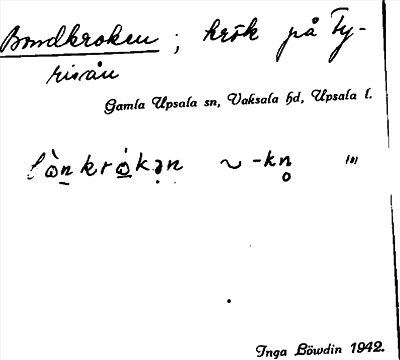 Bondkroken; krök på Fy-
risån
Gamla Upsala sn, Vaksala hd, Upsala l.
~ -kn̥
Inga Löwdin 1942.